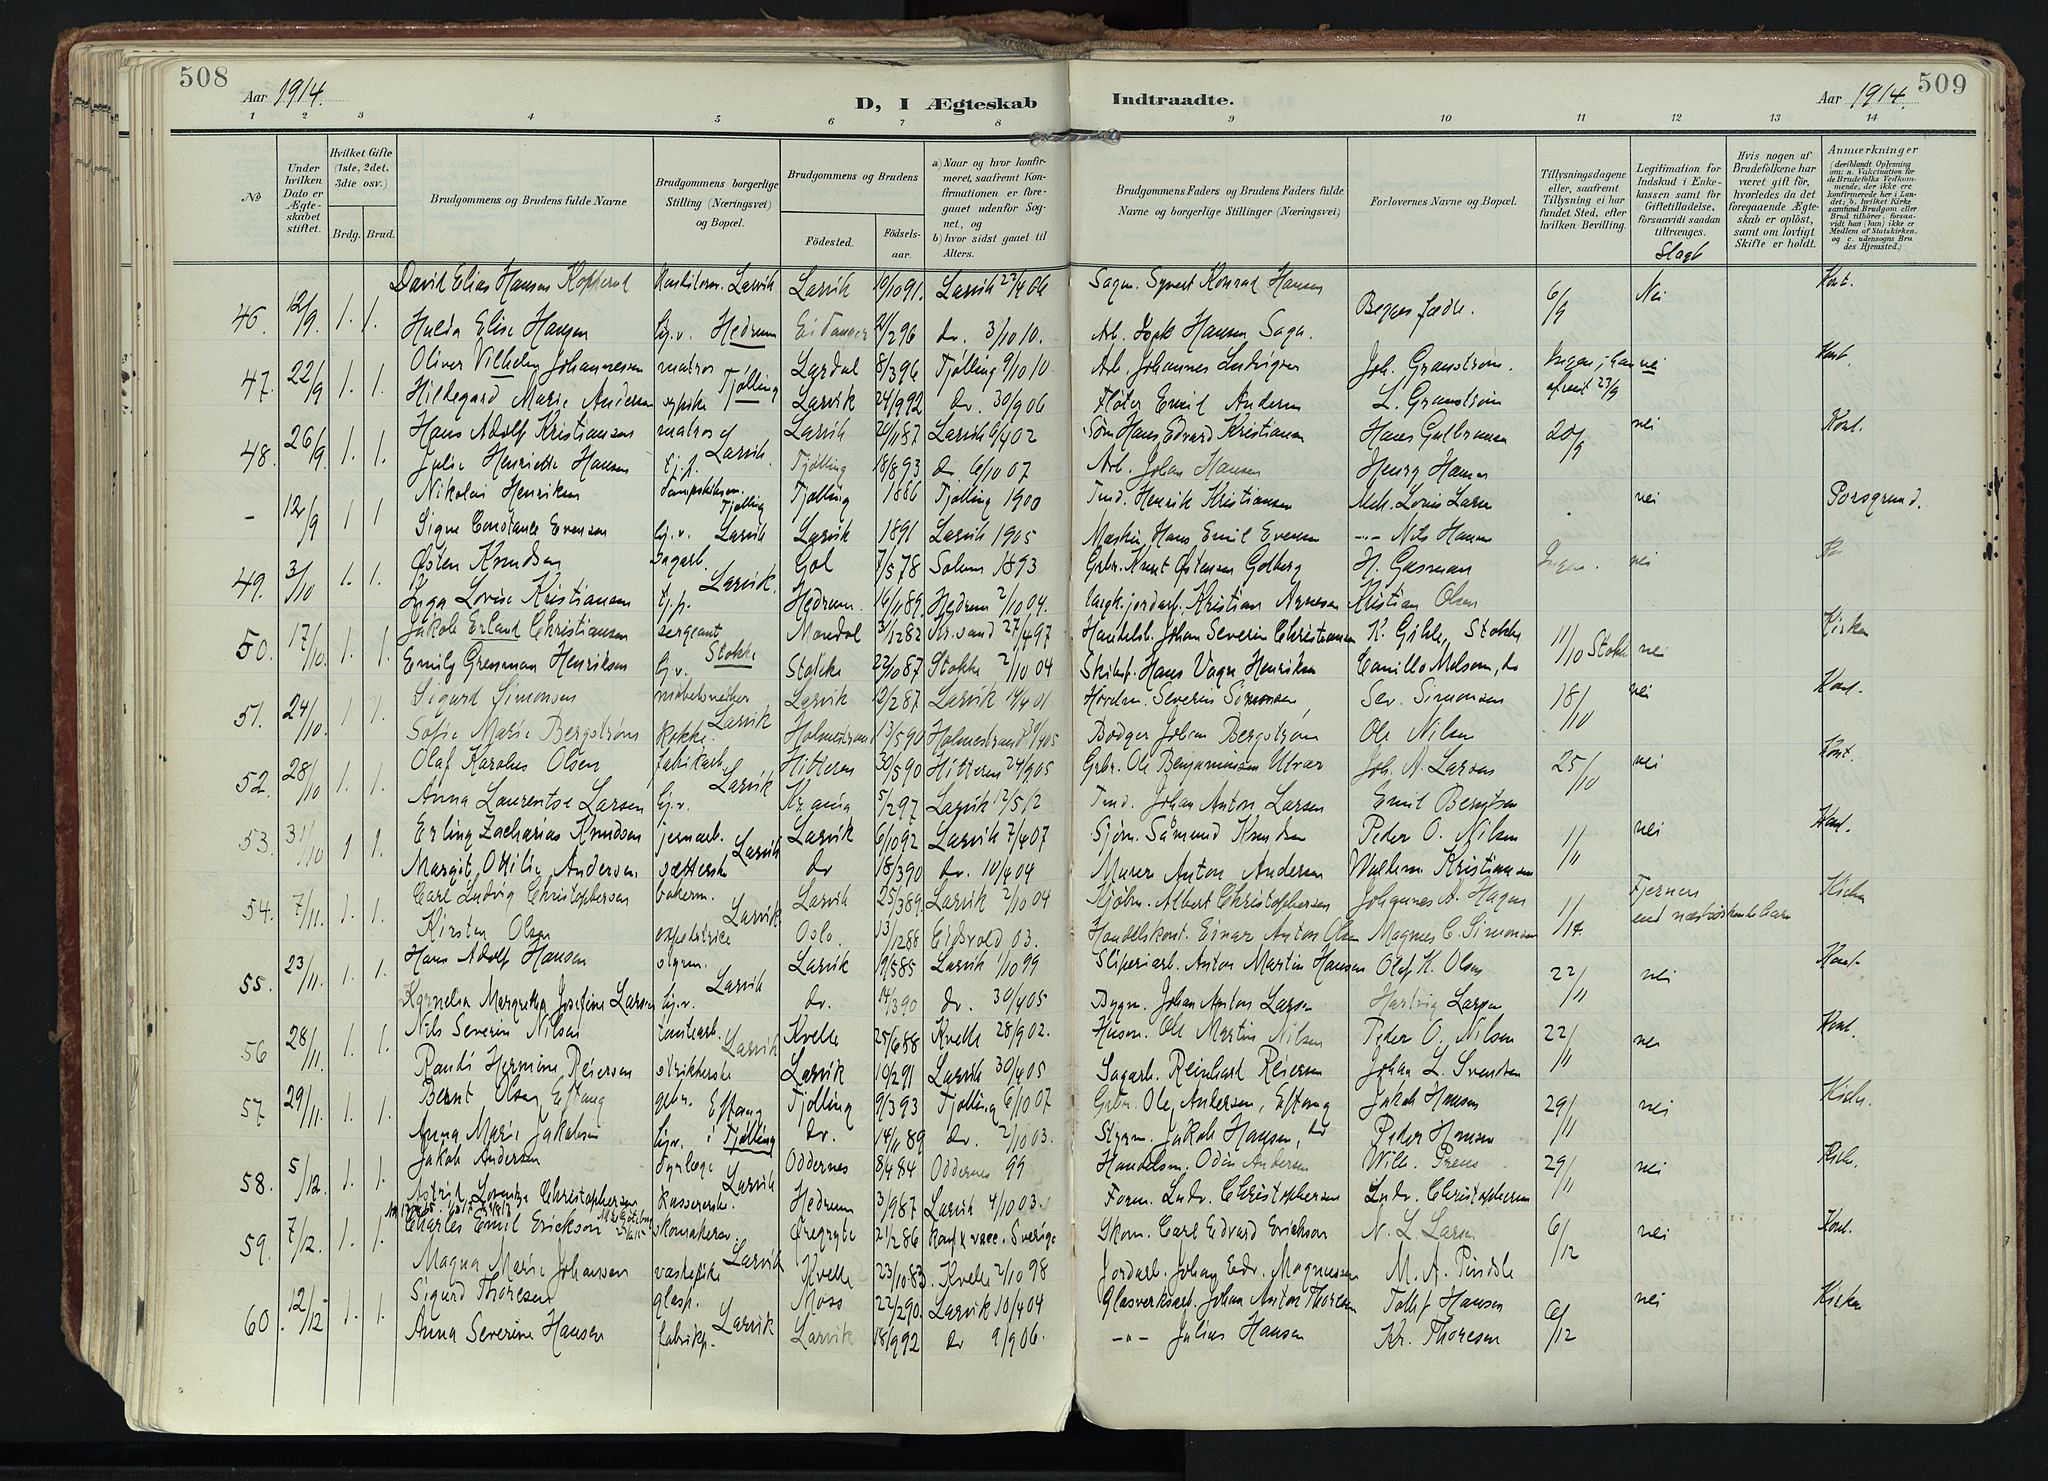 508
Aar 1914.
D, I Ægteskab Indtraadte.
Aar 1914.
509
1 2 3 4 5 6 7 8 9 10 11 12 13 14
No
Under hvilken Dato er Ægteskabet stiftet.
Hvilket Gifte (1ste, 2det, 3die osv.)
Brdg. Brud.
Brudgommens og Brudens fulde Navne
Brudgommens borgerlige Stilling (Næringsvei) og Bopæl.
Brudgommens og Brudens
Fødested.
Fødselsaar.
a) Naar og hvor konfirmeret, saafremt Konfirmationen er foregaaet udenfor Sognet, og
b) hvor sidst gaaet til Alters.
Brudgommens Faders og Brudens Faders fulde Navne og borgerlige Stillinger (Næringsvei)
Forlovernes Navne og Bopæl.
Tillysningsdagene eller, saafremt Tillysning ei har fundet Sted, efter hvilken Bevilling.
Legitimation for Indskud i Enkekassen samt for Giftetilladelse, forsaavidt saadan tiltrænges.
Slagt
Hvis nogen af Brudefolkene har været gift før, hvorledes da det foregaaende Ægteskab er opløst, samt om lovligt Skifte er holdt.
Anmærkninger
(deriblandt Oplysning om: a. Vaccination for de Brudefolks Vedkommende, der ikke ere konfirmerede her i Landet; b. hvilket Kirkesamfund Brudgom eller Brud tilhører, forsaavidt han (hun) ikke er Medlem af Statskirken, og c. udensogns Brudes Hjemsted.)
David Elias Hansen Kopperud Larvik Larvik 9/10 91. Larvik 22/4 06 Sagm. Syvert Konrad Hansen 6/9 Nei Kont.
46. 12/9. 1. 1. Begges fædre.
Hulda Elise Hansen hj.v. Hedrum Eidanger 21/2 96 do. 3/10 10. Arb. Hansen Saga.
Oliver Vilhelm Johannesen matros Lardal 8/3 96 Tjølling 9/10 10. Arb. Johannes Ludvigsen Joh. Granstrøm. Ingen; nei Kont.
47. 22/9 1. 1. Tjølling 23/9
Hildegard Marie Andersen Larvik 24/9 92 do. 30/9 06 Fløter Emil Andersen L. Granstrøm
Hans Adolf Kristiansen matros Larvik 20/11 87 Larvik 6/4 02 Søm. Hans Edvard Kristiansen Hans Gulbransen 20/9 nei Kont.
48. 26/9. 1. 1. Larvik.
Julie Henriette Hansen hj.p. Tjølling 18/8 93 do. 6/10 07 Arb. Johan Hansen Henry Hansen
Nikolai Henriksen Tjølling 1886 Tjølling 1900 Tmd. Henrik Kristiansen Mek. Louis Larsen nei Porsgrund.
– 12/9 1 1 Tjølling
Signe Constance Evensen hj.v. Larvik Larvik 1891 Larvik 1905 Maskin. Hans Emil Evensen –"– Nils Hansen
Østen Knudsen Dagarb. Gol 7/5 78 Solum 1893 Grbr. Knut Østensen Golberg H. Gasman Ingen. nei
49. 3/10 1. 1. Larvik.
Inga Lovise Kristiansen hj.p. Hedrum. 14/11 89. Hedrum 2/10 04. Kristian Arnesen Kristian Olsen
Jakob Erland Christiansen sergeant Mandal 3/12 82 Kr.sand 27/4 97 Handelsb. Johan Severin Christiansen K. Gihle, Stokke 11/10 Stokke nei Kirken
50. 17/10. 1. 1. Stokke
Emily Grenman Henriksen hj.v. Stokke 22/10 87 Stokke 2/10 04 Skibsf. Hans Vagn Henriksen Camillo Melsom, do
Sigurd Simonsen møbelsnedker Larvik 12/2 87 Larvik 14/4 01 Havelm. Severin Simonsen Sev. Simonsen 18/10 nei Kont.
51. 24/10. 1 1. Larvik
Sofie Marie Bergstrøm kokke. Holmestrand 13/5 90 Holmestrand 30/4 05 Bødger Johan Bergstrøm Ole Nilsen
Olaf Karolus Olsen fabrikarb. Hitteren 30/5 90 Hitteren 24/9 05 Grbr. Ole Benjaminsen Utvær Joh. A. Larsen 25/10 nei Kont.
52. 28/10 1. 1. Larvik
Anna Laurentse Larsen hj.v. Kr.ania 5/2 97 Larvik 12/5 12 Tmd. Johan Anton Larsen Emil Berntsen
Erling Zacharias Knudsen jernarb. Larvik 6/10 92 Larvik 7/4 07 Sjøm. Sämund Knudsen Peder O. Nilsen 1/11 nei Kont.
53. 31/10 1 1. Larvik
Margit Otilie Andersen. sætterske do 18/3 90 do. 10/4 04 Murer Anton Andersen Wilhelm Kristiansen
Carl Ludvig Christophersen bakerm. Larvik 25/3 89. Larvik 2/10 04 Kjøbm. Albert Christophersen Johannes A. Hagen 1/11 14. Fjernere end næstsøskendebarn Kirken
54. 7/11. 1. 1. Larvik
Kirsten Olsen expeditrice Oslo. 13/12 88 Eidsvold 03. Handelskont. Einar Anton Olsen Magnus C. Simonsen
Hans Adolf Hansen styrm. Larvik 19/5 85 Larvik 1/10 99 Sliperiarb. Anton Martin Hansen Olaf K. Olsen 22/11 nei Kont.
55. 23/11. 1. 1. Larvik
Kornelia Margretha Josefine Larsen hj.v. do. 14/3 90 do. 30/4 05 Bygm. Johan Anton Larsen Hartvig Larsen
Nils Severin Nilsen tomtearb. Kvelle 25/6 88 Kvelle 28/9 02. Husm. Ole Martin Nilsen Peder O. Nilsen 22/11 nei Kont.
56 28/11. 1. 1. Larvik
Randi Hermine Reiersen strikkerske Larvik 10/2 91 Larvik 30/4 05 Sagarb. Reinhard Reiersen Johan L. Svendsen
Bernt Olsen Eftang gbr. Eftang Tjølling 9/3 93 Tjølling 6/10 07 Grbr. Ole Andersen, Eftang Jakob Hansen 29/11 nei Kirken.
57. 29/11. 1. 1.
Anna Marie Jakobsen hj.v. i Tjølling do. 14/11 89 do. 2/10 03. Styrm. Jakob Hansen, do Peder Hansen
Jakob Andersen dyrlæge Oddernes 8/4 84 Oddernes 99 Handelsm. Odin Andersen Wilh. Preus 29/11 nei Kirk.
58. 5/12. 1. 1. Larvik
Astrid Lorentze Christophersen kassererske. Hedrum 3/9 87 Larvik 4/10 03. Form. Ludv. Christophersen Ludv. Christophersen
Charles Emil Erickson skomakersv. Ørgryte 21/2 86 konf. & vacc. Sverige Skom. Carl Edvard Erickson N. L. Larsen 6/12 nei Kont.
59. 7/12. 1. 1. Larvik
Magna Marie Johansen vaskepike Kvelle 23/10 83. Kvelle 2/10 98 Jordarb. Johan Edv. Magnussen M. A. Pindsle
Sigurd Thoresen glasp. Moss 22/2 90. Larvik 10/4 04 Glasverksarb. Johan Anton Thoresen Tollef Hansen 6/12 nei Kirken
60. 12/12. 1. 1. Larvik
Anna Severine Hansen fabrikp. Larvik 18/9 92 do 9/9 06. –"– Julius Hansen Kr. Thoresen